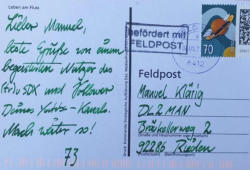 Leben am Fluss
Lieber Manuel,
liebe Grüße von einem
begeisterten Nutzer des
SDX und Follower
Deines Kanals.
Mach weiter so!
73,
befördert mit
FELDPOST
6412
70
Feldpost
Manuel Klärig
DL2MAN
Brätkelerweg 2
92286 Rieden